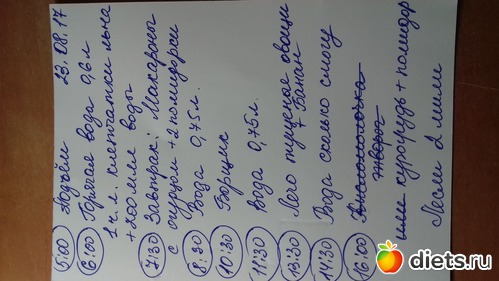 5:00 Подъём 23.08.17
6:00 Горячая вода 0,6л
1 ч.л. клетчатки льна
+200 мл воды
7:30 Завтрак: Макароны
с огурцом +2 помидорки
8:30 Вода 0,75л.
10:30 Борщик
11:30 Вода 0,75л.
13:30 Лечо тушеное овощи
7 Банан
14:30 Вода сколько смогу
16:00
творог
или курогрудь + помидор
2
diets.ru